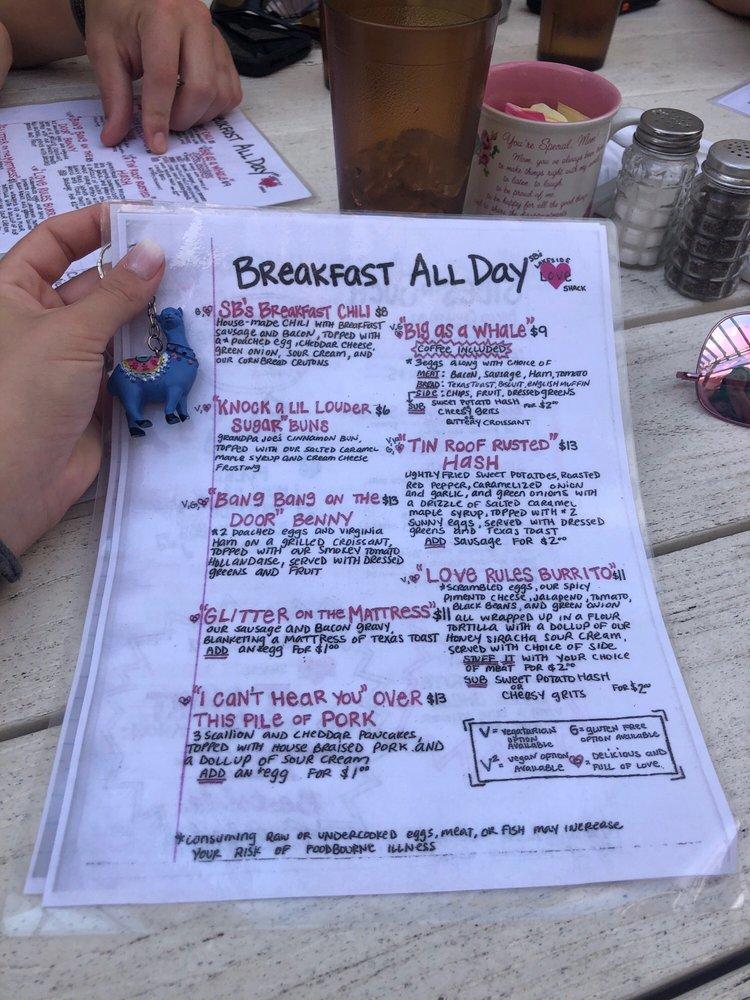 BREAKFAST ALL DAY
SB's LAKESIDE
LOVE
SHACK
G, SB'S BREAKFAST CHILI $8
HOUSE-MADE CHILI WITH BREAKFAST
SAUSAGE AND BACON, TOPPED WITH
A * POACHED EGG, CHEDDAR CHEESE,
GREEN ONION, SOUR CREAM, AND
OUR CORNBREAD CRUTONS
V, "KNOCK A LIL LOUDER $6
SUGAR" BUNS
GRANDPA JOE'S CINNAMON BUN,
TOPPED WITH OUR SALTED CARAMEL
MAPLE SYRUP AND CREAM CHEESE
FROSTING
V,G, "BANG BANG ON THE $13
DOOR" BENNY
*2 POACHED EGGS AND VIRGINIA
HAM ON A GRILLED CROISSANT,
TOPPED WITH OUR SMOKEY TOMATO
HOLLANDAISE, SERVED WITH DRESSED
GREENS AND FRUIT
"GLITTER ON THE MATTRESS" $11
OUR SAUSAGE AND BACON GRAVY
BLANKETING A MATTRESS OF TEXAS TOAST
ADD AN *EGG FOR $1.00
"I CAN'T HEAR YOU" OVER $13
THIS PILE OF PORK
3 SCALLION AND CHEDDAR PANCAKES,
TOPPED WITH HOUSE BRAISED PORK AND
A DOLLUP OF SOUR CREAM
ADD AN *EGG FOR $1.00
V,G "BIG AS A WHALE" $9
COFFEE INCLUDED
*3 EGGS ALONG WITH CHOICE OF
MEAT: BACON, SAUSAGE, HAM, TOMATO
BREAD: TEXAS TOAST, BISCUIT, ENGLISH MUFFIN
SIDE: CHIPS, FRUIT, DRESSED GREENS
SUB SWEET POTATO HASH FOR $2.00
CHEESY GRITS
OR
BUTTERY CROISSANT
"TIN ROOF RUSTED" $13
HASH
LIGHTLY FRIED SWEET POTATOES, ROASTED
RED PEPPER, CARAMELIZED ONION
AND GARLIC, AND GREEN ONIONS WITH
A DRIZZLE OF SALTED CARAMEL
MAPLE SYRUP, TOPPED WITH *2
SUNNY EGGS, SERVED WITH DRESSED
GREENS AND TEXAS TOAST
ADD SAUSAGE FOR $2.00
V, "LOVE RULES BURRITO" $11
*SCRAMBLED EGGS, OUR SPICY
PIMENTO CHEESE, JALAPENO, TOMATO,
BLACK BEANS, AND GREEN ONION
ALL WRAPPED UP IN A FLOUR
TORTILLA WITH A DOLLUP OF OUR
HONEY SIRACHA SOUR CREAM,
SERVED WITH CHOICE OF SIDE
STUFF IT WITH YOUR CHOICE
OF MEAT FOR $2.00
SUB SWEET POTATO HASH
OR
CHEESY GRITS FOR $2.00
V= VEGETARIAN OPTION AVAILABLE
G= GLUTEN FREE OPTION AVAILABLE
V2= VEGAN OPTION AVAILABLE
= DELICIOUS AND FULL OF LOVE
*CONSUMING RAW OR UNDERCOOKED EGGS, MEAT, OR FISH MAY INCREASE
YOUR RISK OF FOODBOURNE ILLNESS
You're Special, Mom
Mom, you've always been
to make things right
to listen, to laugh,
to be proud of me,
to be happy for all the good things
BREAKFAST ALL DAY